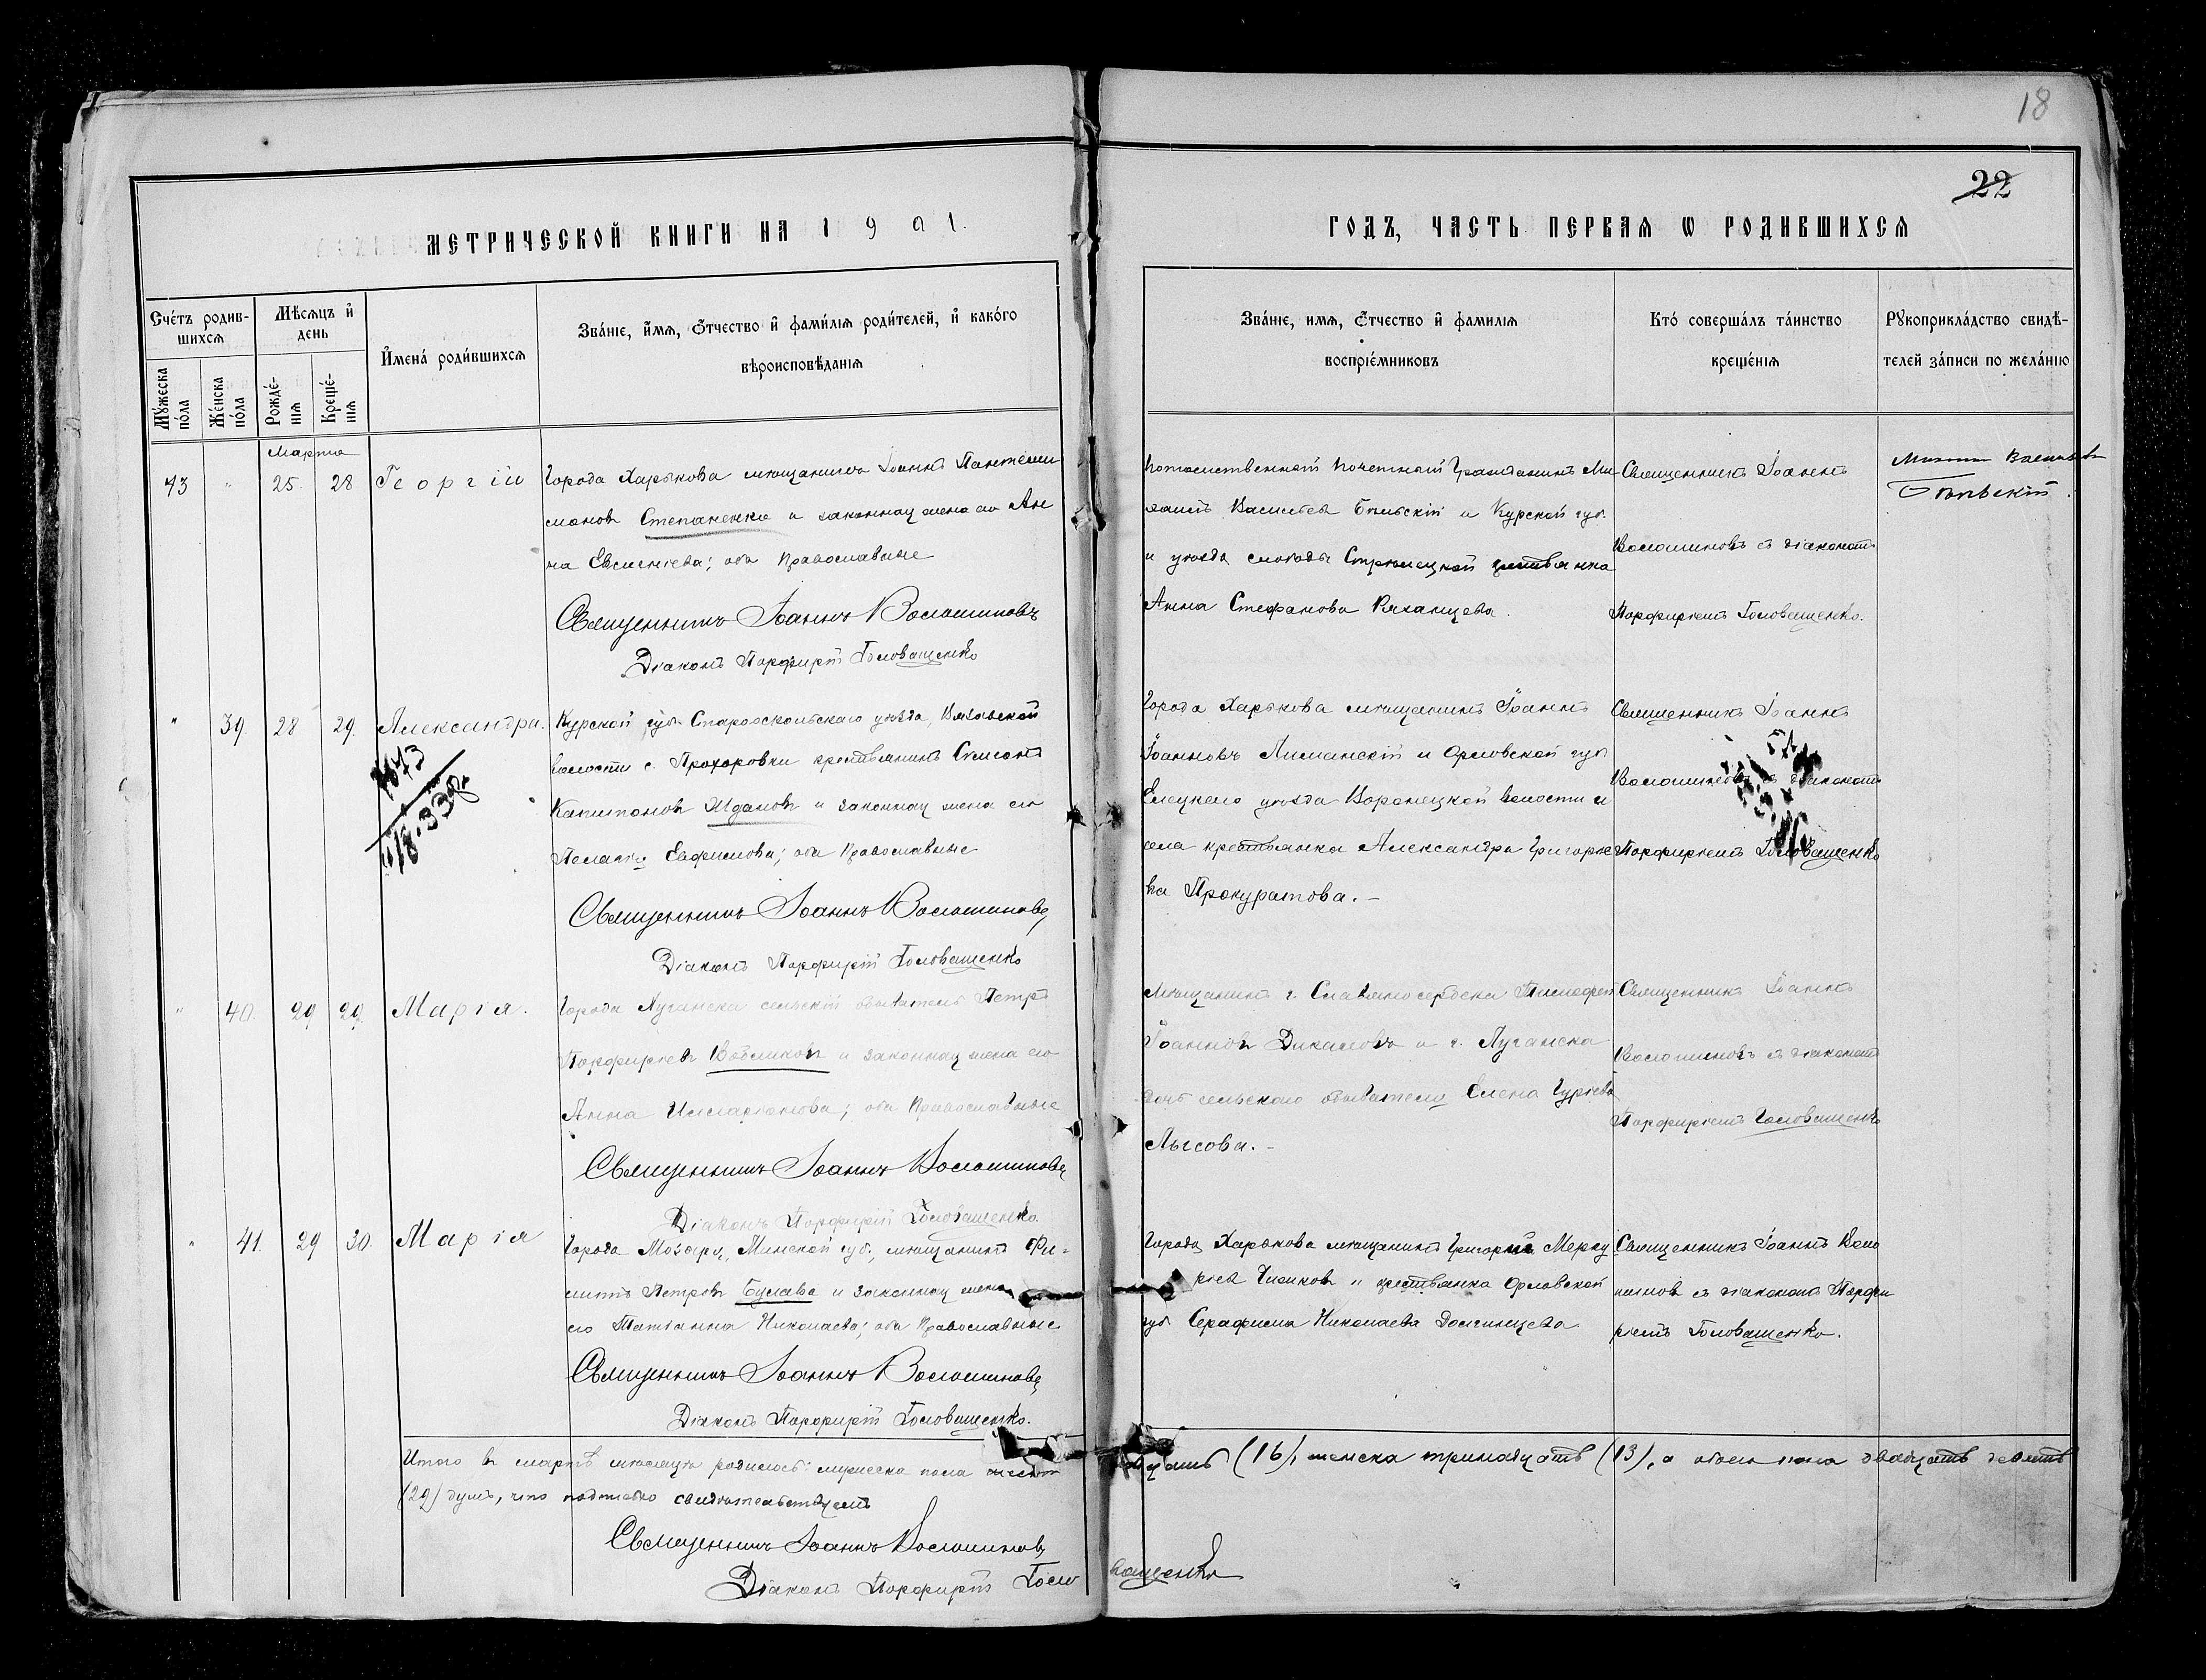 18
22
МЕТРИЧЕСКОЙ КНИГИ НА 1901.
ГОДЪ, ЧАСТЬ ПЕРВАЯ Ѡ РОДИВШИХСЯ
Счетъ родив-
шихся
Мѣсяцъ и
день
Мужеска
пола
Женска
пола
Рожде-
нія
Креще-
нія
Имена родившихся
Званіе, имя, отчество и фамилія родителей, и какого
вѣроисповѣданія
Званіе, имя, отчество и фамилія
воспріемниковъ
Кто совершалъ таинство
крещенія
Рукоприкладство свидѣ-
телей записи по желанію
Марта
43 " 25. 28 Георгій
Города Харькова мѣщанинъ Іоаннъ Пантелеи
моновъ Степаненко и законная жена его Ан
на Евсигніева; оба Православные
Священникъ Іоаннъ Волошиновъ
Діаконъ Порфирій Головащенко
Потомственный Почетный Гражданинъ Ми
хаилъ Васильевъ Бѣльскій и Курской губ.
и уѣзда слободы Стрѣлецкой крестьянка
Анна Стефанова Рязанцева.
Священникъ Іоаннъ
Волошиновъ съ діакономъ
Порфиріемъ Головащенко.
" 39 28 29. Александра.
Курской губ. Старооскольскаго уѣзда, Вязовской
волости с. Прохоровки крестьянинъ Симеонъ
Капитоновъ Ждановъ и законная жена его
Пелагія Евфимова; оба Православные
Священникъ Іоаннъ Волошиновъ
Діаконъ Порфирій Головащенко
Города Харькова мѣщанинъ Іоаннъ
Іоанновъ Лиманскій и Орловской губ.
Елецкаго уѣзда Воронецкой волости и
села крестьянка Александра Григорье
ва Прокуратова. –
Священникъ Іоаннъ
Волошиновъ съ діакономъ
Порфиріемъ Головащенко
" 40. 29 29. Марія.
Города Луганска сельскій обыватель Петръ
Порфирьевъ Вобликовъ и законная жена его
Анна Илларіонова; оба Православные
Священникъ Іоаннъ Волошиновъ
Діаконъ Порфирій Головащенко.
Мѣщанинъ г. Славяносербска
Іоанновъ Дикаловъ и г. Луганска
дочь сельскаго обывателя Елена Гуріева
Лысова. –
Священникъ Іоаннъ
Волошиновъ съ діакономъ
Порфиріемъ Головащенко
" 41. 29 30. Марія
Города Мозыря, Минской губ., мѣщанинъ Фи-
липпъ Петровъ Булава и законная жена
его Татіанна Николаева; оба Православные
Священникъ Іоаннъ Волошиновъ
Діаконъ Порфирій Головащенко.
Города Харькова мѣщанинъ Григорій Мерку
рьевъ и крестьянка Орловской
губ. Серафима Николаева Долгинцева
Священникъ Іоаннъ Воло
шиновъ съ діакономъ Порфи
ріемъ Головащенко.
Итого въ мартѣ мѣсяцѣ родилось: мужеска пола шестнадцать (16), женска тринадцать (13), а обоего пола двадцать девять
(29) душъ, что подписью свидѣтельствуемъ
Священникъ Іоаннъ Волошиновъ
Діаконъ Порфирій Головащенко